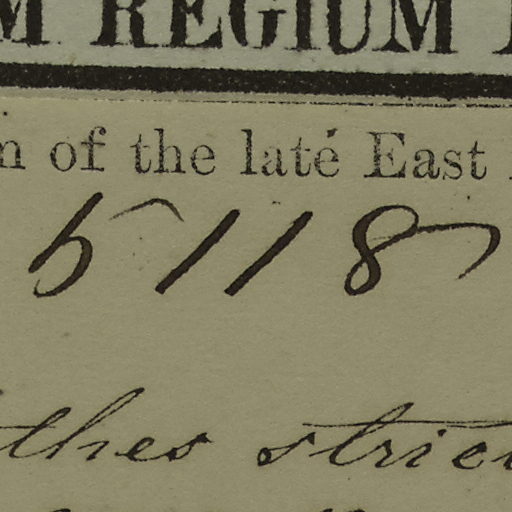 M REGIUM
n of the late East
5118
thes stric